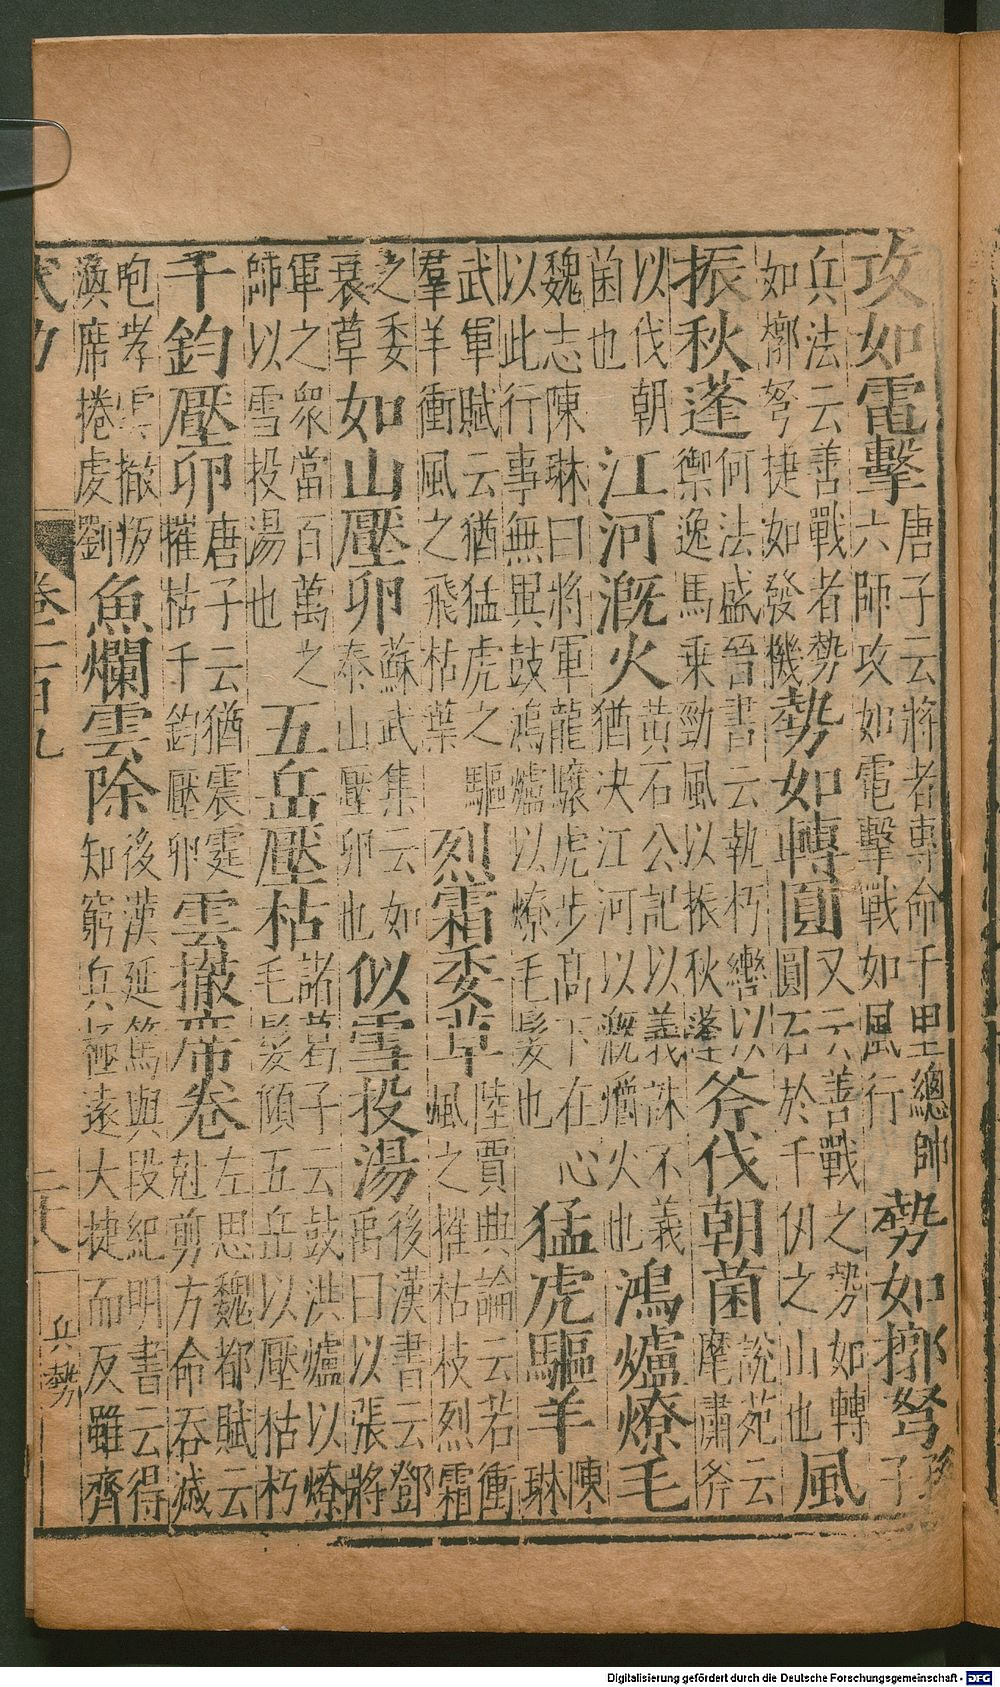 攻如電擊唐子云將者專命千里總帥六師攻如電擊戰如風行勢如擴弩孫子
兵法云善戰者勢如擴弩捷如發機勢如轉圓又云善戰之勢如轉圓石於千仞之山也風
振秋蓬何法盛晉書云執朽轡以禦逸馬乗勁風以振秋蓬斧伐朝菌說苑云摩肅斧
以伐朝菌也江河溉火黃石公記以義誅不義猶决江河以溉爝火也鴻爐燎毛
魏志陳琳曰將軍龍驤虎步髙下在心以此行事無異鼓鴻爐以燎毛髮也猛虎驅羊陳琳
武軍賦云猶猛虎之驅羣羊衝風之飛枯葉烈霜委草陸賈典論云若衝風之摧枯枝烈霜
之委衰草如山壓卵蘇武集云如泰山壓卵也似雪投湯後漢書云鄧禹曰以張將
軍之衆當百萬之師以雪投湯也五岳壓枯諸葛子云鼓洪爐以燎毛髮傾五岳以壓枯朽
千鈞壓卵唐子云猶震霆摧枯千鈞壓卵雲撤席卷左思魏都賦云尅剪方命吞滅
咆烋雲撤叛渙席捲虔劉魚爛雲除後漢延篤與段紀明書云得知窮兵極遠大捷而反雖齊
武功 卷一百九 二六 兵勢
Digitalisierung gefördert durch die Deutsche Forschungsgemeinschaft - DFG